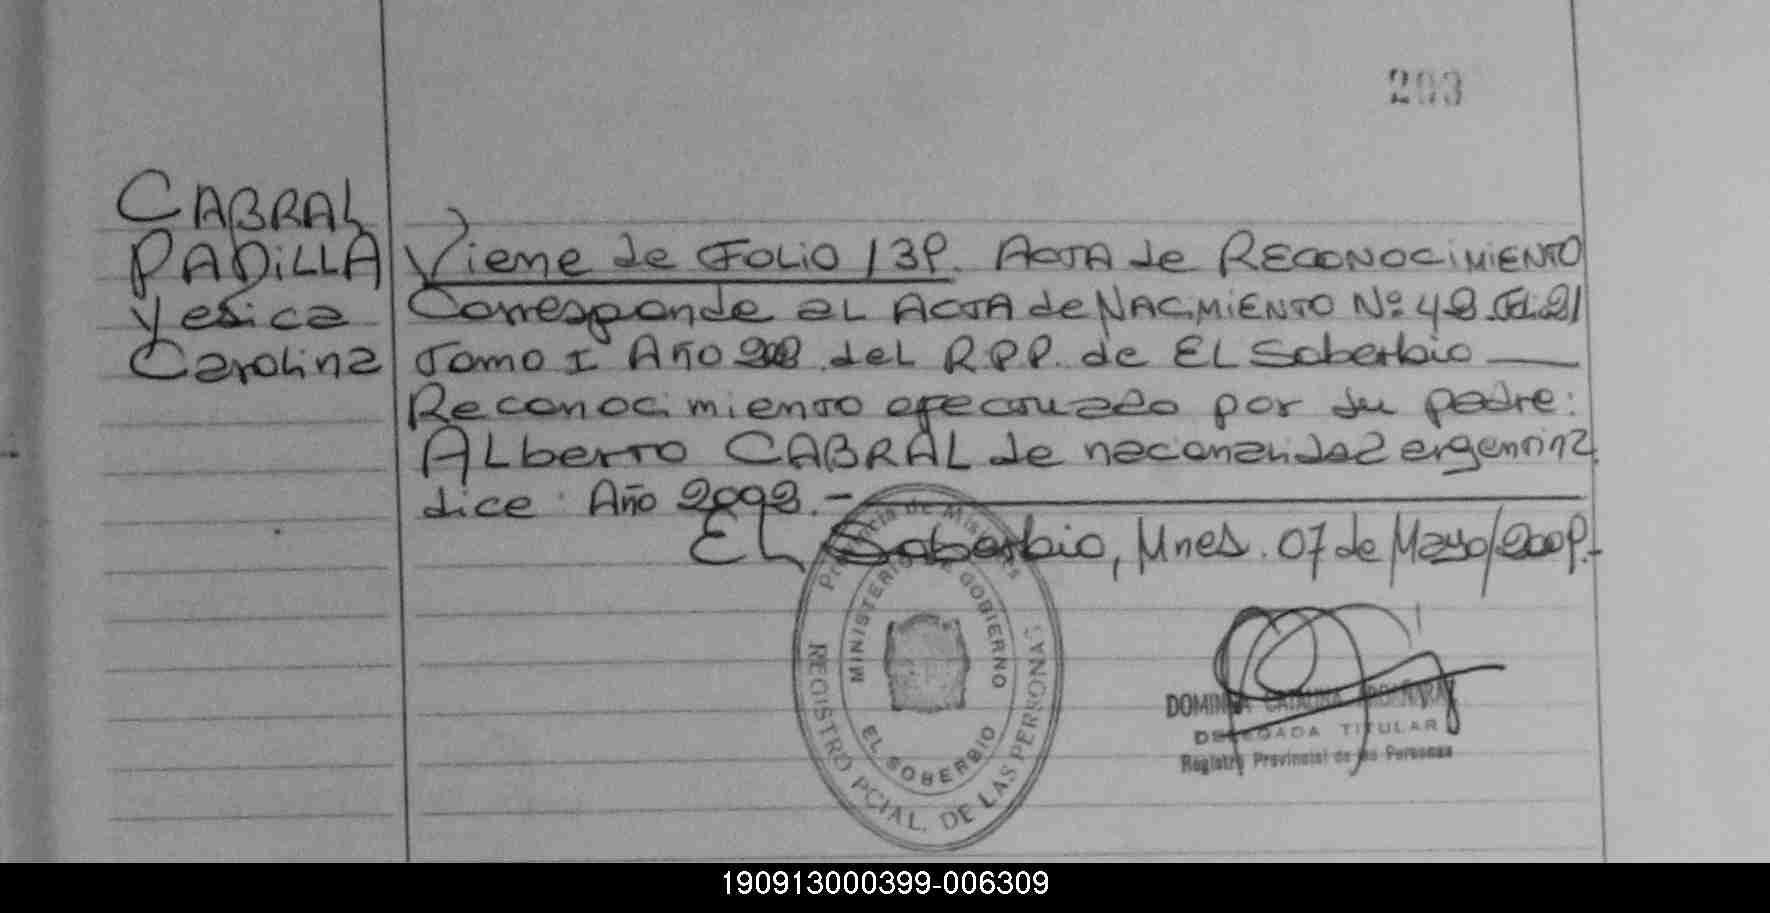 203
CABRAL
PADILLA
Yesica
Carolina
Viene de FOLIO 139. ACTA de RECONOCIMIENTO
Corresponde al ACTA de NACIMIENTO Nº 48 Fl: 21
Tomo I Año 2002 del R.P.P. de El Soberbio
Reconocimiento efectuado por su padre:
Alberto CABRAL de nacionalidad argentina
dice: Año 2002.-
El Soberbio, Mnes. 07 de Mayo/2009.-
Provincia de Misiones
MINISTERIO DE GOBIERNO
EL SOBERBIO
REGISTRO PCIAL. DE LAS PERSONAS
CATALINA
DELEGADA TITULAR
Registro Provincial de las Personas
190913000399-006309